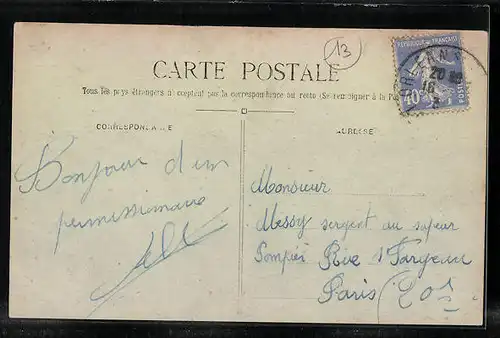 13
RÉPUBLIQUE FRANÇAISE
40
POSTES
CARTE POSTALE
Tous les pays étrangers n'acceptent pas la correspondance au recto (Se renseigner à la Poste)
CORRESPONDANCE
ADRESSE
Bonjour d'un
permissionnaire
Monsieur
Messy sergent au sapeur
Pompier Rue St Fargeau
Paris